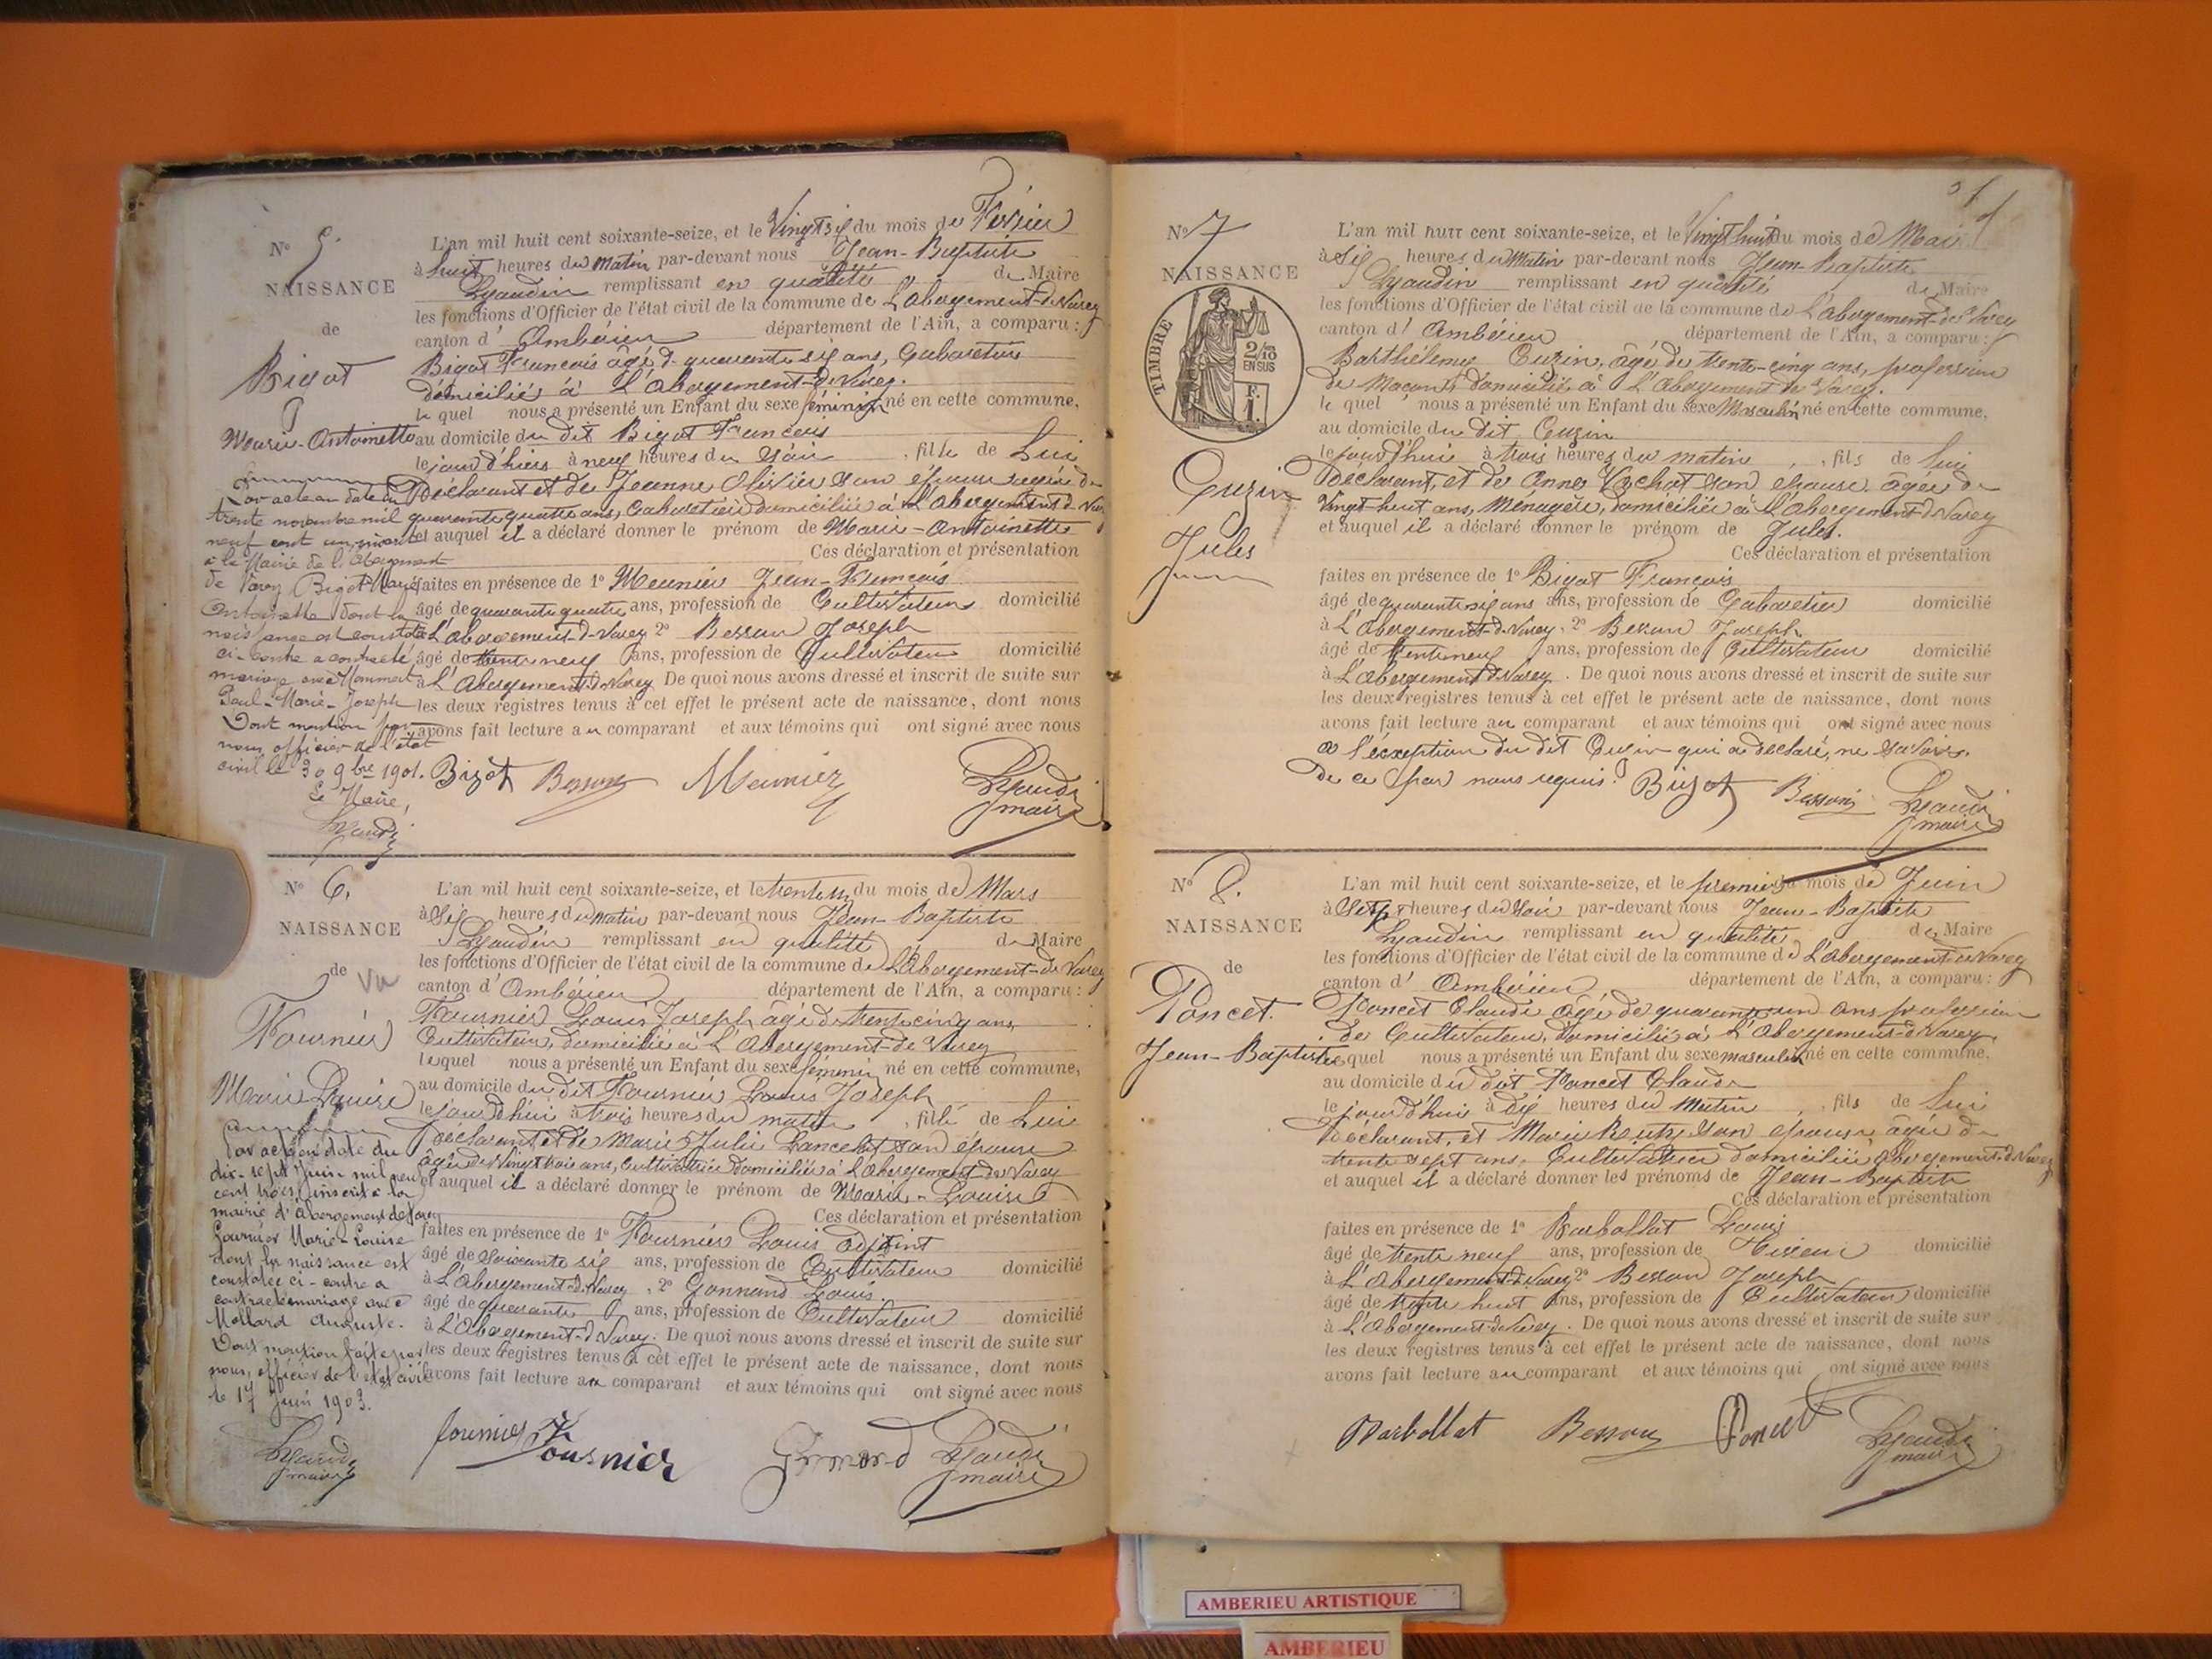 N° 5.
NAISSANCE
de
Bigot
Marie-Antoinette
Par acte en date du
trente novembre mil
neuf cent un, inscrit
à la Mairie de l'Abergement
de Varey Bigot Marie
Antoinette dont la
naissance est constatée
ci-contre a contracté
mariage avec Mommet
Paul-Marie-Joseph
Dont mention par
nous officier de l'état
civil le 30 9bre 1901.
Le Maire,
L'an mil huit cent soixante-seize, et le Vingt six du mois de Février
à huit heures du Matin par-devant nous Jean-Baptiste
Lyaudin remplissant en qualité de Maire
les fonctions d'Officier de l'état civil de la commune de L'abergement-de-Varey
canton d' Ambérieu département de l'Ain, a comparu :
Bigot François âgé de quarante six ans, Cabaretier
domicilié à L'Abergement-de-Varey.
le quel nous a présenté un Enfant du sexe féminin né en cette commune,
au domicile du dit Bigot François
le jour d'hier à neuf heures du soir , fille de Lui
Déclarant et de Jeanne Olivier son épouse agée de
quarante quatre ans, Cabaretière domiciliée à L'Abergement-de-Varey
et auquel il a déclaré donner le prénom de Marie-Antoinette
Ces déclaration et présentation
faites en présence de 1° Meunier Jean-François
âgé de quarante quatre ans, profession de Cultivateur domicilié
à L'abergement-de-Varey 2° Besson Joseph
âgé de trente neuf ans, profession de Cultivateur domicilié
à L'Abergement-de-Varey De quoi nous avons dressé et inscrit de suite sur
les deux registres tenus à cet effet le présent acte de naissance, dont nous
avons fait lecture au comparant et aux témoins qui ont signé avec nous
Bigot Besson Meunier Lyaudin maire
N° 6.
NAISSANCE
de Vu
Fournier
Marie Louise
Par acte en date du
dix-sept Juin mil neuf
cent trois, inscrit à la
mairie d'Abergement de Varey
Fournier Marie-Louise
dont la naissance est
constatée ci-contre a
contracté mariage avec
Mollard Auguste.
Dont mention faite par
nous, officier de l'état civil
le 17 Juin 1903.
Lyaudin maire
L'an mil huit cent soixante-seize, et le trente un du mois de Mars
à Six heures du Matin par-devant nous Jean-Baptiste
Lyaudin remplissant en qualité de Maire
les fonctions d'Officier de l'état civil de la commune de L'Abergement-de Varey
canton d' Ambérieu département de l'Ain, a comparu :
Fournier Louis Joseph âgé de trente cinq ans
Cultivateur, domicilié à L'Abergement-de Varey
lequel nous a présenté un Enfant du sexe féminin né en cette commune,
au domicile du dit Fournier Louis Joseph
le jour d'hui à trois heures du matin , fille de Lui
Déclarant et de Marie Julie Lancelot son épouse
âgée de Vingt trois ans, Cultivatrice domiciliée à L'Abergement de Varey
et auquel il a déclaré donner le prénom de Marie-Louise
Ces déclaration et présentation
faites en présence de 1° Fournier Louis adjoint
âgé de soixante six ans, profession de Cultivateur domicilié
à L'Abergement-de-Varey , 2° Gonnand Louis.
âgé de quarante ans, profession de Cultivateur domicilié
à L'Abergement-de Varey. De quoi nous avons dressé et inscrit de suite sur
les deux registres tenus à cet effet le présent acte de naissance, dont nous
avons fait lecture au comparant et aux témoins qui ont signé avec nous
fournier Fournier Gonnand Lyaudin maire
N° 7
NAISSANCE
TIMBRE
2/10
EN SUS
F.
1.
Cuzin
Jules
L'an mil huit cent soixante-seize, et le Vingt huit du mois de Mai
à Six heures du Matin par-devant nous Jean-Baptiste
Lyaudin remplissant en qualité de Maire
les fonctions d'Officier de l'état civil de la commune de L'abergement-de Varey
canton d' Ambérieu département de l'Ain, a comparu :
Barthélemy Cuzin, âgé de trente-cinq ans, profession
de Maçon domicilié à L'Abergement de Varey.
le quel nous a présenté un Enfant du sexe Masculin né en cette commune,
au domicile du dit Cuzin
le jour d'hui à trois heures du matin , fils de lui
Déclarant, et de Anne Vachat son épouse âgée de
Vingt-huit ans, Ménagère, domiciliée à L'abergement-de Varey
et auquel il a déclaré donner le prénom de Jules.
Ces déclaration et présentation
faites en présence de 1° Bigot François
âgé de quarante six ans ans, profession de Cabaretier domicilié
à L'Abergement-de-Varey, 2° Besson Joseph
âgé de trente neuf ans, profession de Cultivateur domicilié
à L'abergement de Varey . De quoi nous avons dressé et inscrit de suite sur
les deux registres tenus à cet effet le présent acte de naissance, dont nous
avons fait lecture au comparant et aux témoins qui ont signé avec nous
a l'éxception du dit Cuzin qui a déclaré, ne savoir.
De ce par nous requis. Bigot Besson Lyaudin maire
N° 8.
NAISSANCE
de
Poncet.
Jean-Baptiste
L'an mil huit cent soixante-seize, et le premier du mois de Juin
à Sept heures du soir par-devant nous Jean-Baptiste
Lyaudin remplissant en qualité de Maire
les fonctions d'Officier de l'état civil de la commune de L'abergement de Varey
canton d' Ambérieu département de l'Ain, a comparu :
Poncet Claude âgé de quarante un ans profession
de Cultivateur, domicilié à L'Abergement-de Varey
le quel nous a présenté un Enfant du sexe masculin né en cette commune,
au domicile du dit Poncet Claude
le jour d'hui à dix heures du Matin , fils de lui
Déclarant, et Marie son épouse âgée de
trente sept ans, Cultivatrice domiciliée Abergement de Varey
et auquel il a déclaré donner les prénoms de Jean-Baptiste
Ces déclaration et présentation
faites en présence de 1° Barbollat Louis
âgé de trente neuf ans, profession de Tisseur domicilié
à L'abergement de Varey 2° Besson Joseph
âgé de trente huit ans, profession de Cultivateur domicilié
à L'Abergement-de Varey . De quoi nous avons dressé et inscrit de suite sur
les deux registres tenus à cet effet le présent acte de naissance, dont nous
avons fait lecture au comparant et aux témoins qui ont signé avec nous
Barbollat Besson Poncet Lyaudin maire
AMBERIEU ARTISTIQUE
AMBERIEU